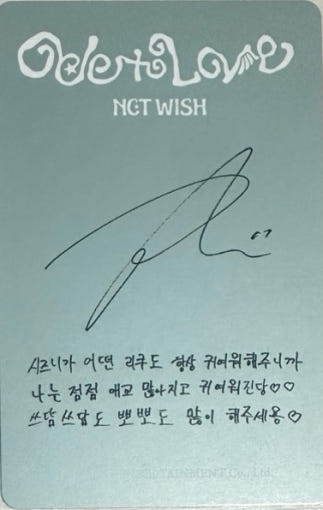 Ode to Love
NCT WISH
시즈니가 어떤 리쿠도 항상 귀여워해주니까
나는 점점 애교 많아지고 귀여워진당♡♡
쓰담쓰담도 뽀뽀도 많이 해주세용♡
TAINMENT Co., Ltd.